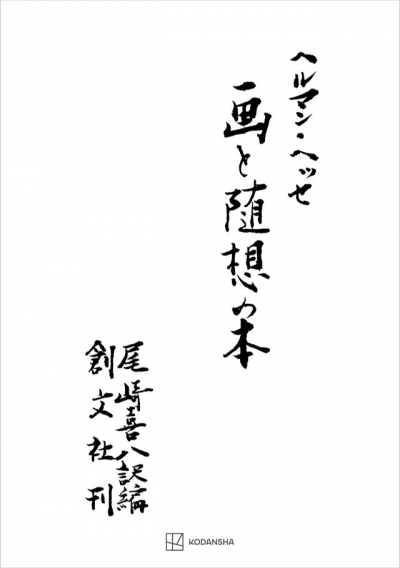 ヘルマン・ヘッセ
画と随想の本
尾崎喜八訳編
創文社刊
KODANSHA